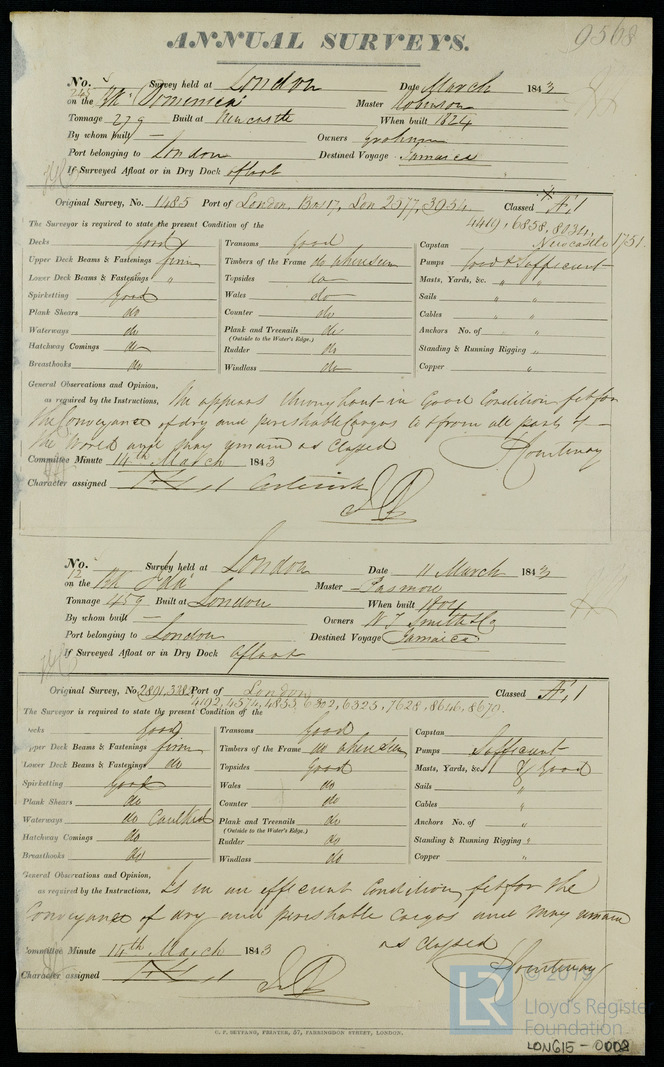 9568
ANNUAL SURVEYS.
No. 245 Survey held at London Date March 1843
on the Bk Dominica Master Robinson
Tonnage 279 Built at Newcastle When built 1824
By whom built — Owners Graham
Port belonging to London Destined Voyage Jamaica
If Surveyed Afloat or in Dry Dock afloat
Original Survey, No. 1485 Port of London, 1317, Lon 2577, 3954, Classed *A,1
4419, 6858, 8834,
Newcastle 1751
The Surveyor is required to state the present Condition of the
Decks good Transoms good Capstan
Upper Deck Beams & Fastenings firm Timbers of the Frame do when seen Pumps Good & Sufficient
Lower Deck Beams & Fastenings " Topsides do Masts, Yards, &c. " "
Spirketting Good Wales do Sails " "
Plank Shears do Counter do Cables " "
Waterways do Plank and Treenails do Anchors No. of " "
(Outside to the Water's Edge.)
Hatchway Comings do Rudder do Standing & Running Rigging "
Breasthooks do Windlass do Copper "
General Observations and Opinion,
as required by the Instructions, She appears throughout in Good Condition fit for
the Conveyance of dry and perishable Cargos to & from all parts of
the World and may remain as Classed
Courtenay
Committee Minute 14th March 1843
Character assigned A 1 Asterisk
No. 12 Survey held at London Date 11 March 1843
on the Bk Ida Master Pasmore
Tonnage 459 Built at London When built 1804
By whom built — Owners W T Smith & Co
Port belonging to London Destined Voyage Jamaica
If Surveyed Afloat or in Dry Dock afloat
Original Survey, No. 2891, 3383 Port of London Classed Æ,1
4192, 4574, 4855, 6302, 6325, 7628, 8646, 8670.
The Surveyor is required to state the present Condition of the
Decks Good Transoms Good Capstan
Upper Deck Beams & Fastenings firm Timbers of the Frame do when seen Pumps Sufficient
Lower Deck Beams & Fastenings do Topsides Good Masts, Yards, &c. & Good
Spirketting Good Wales do Sails "
Plank Shears do Counter do Cables "
Waterways do Caulked Plank and Treenails do Anchors No. of "
(Outside to the Water's Edge.)
Hatchway Comings do Rudder do Standing & Running Rigging "
Breasthooks do Windlass do Copper "
General Observations and Opinion,
as required by the Instructions, Is in an efficient Condition, fit for the
Conveyance of dry and perishable Cargos and may remain
as classed
Courtenay
Committee Minute 14th March 1843
Character assigned Æ 1
© 2019
LR
Lloyd's Register
Foundation
C. F. SEYFANG, PRINTER, 57, FARRINGDON STREET, LONDON.
LON615-0002